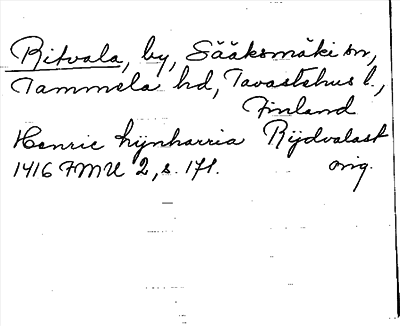 Ritvala, by, Sääksmäki sn,
Tammela hd, Tavastehus l.,
Finland
Henric hijnharria Rijdvalast
1416 FMU 2, s. 171. orig.